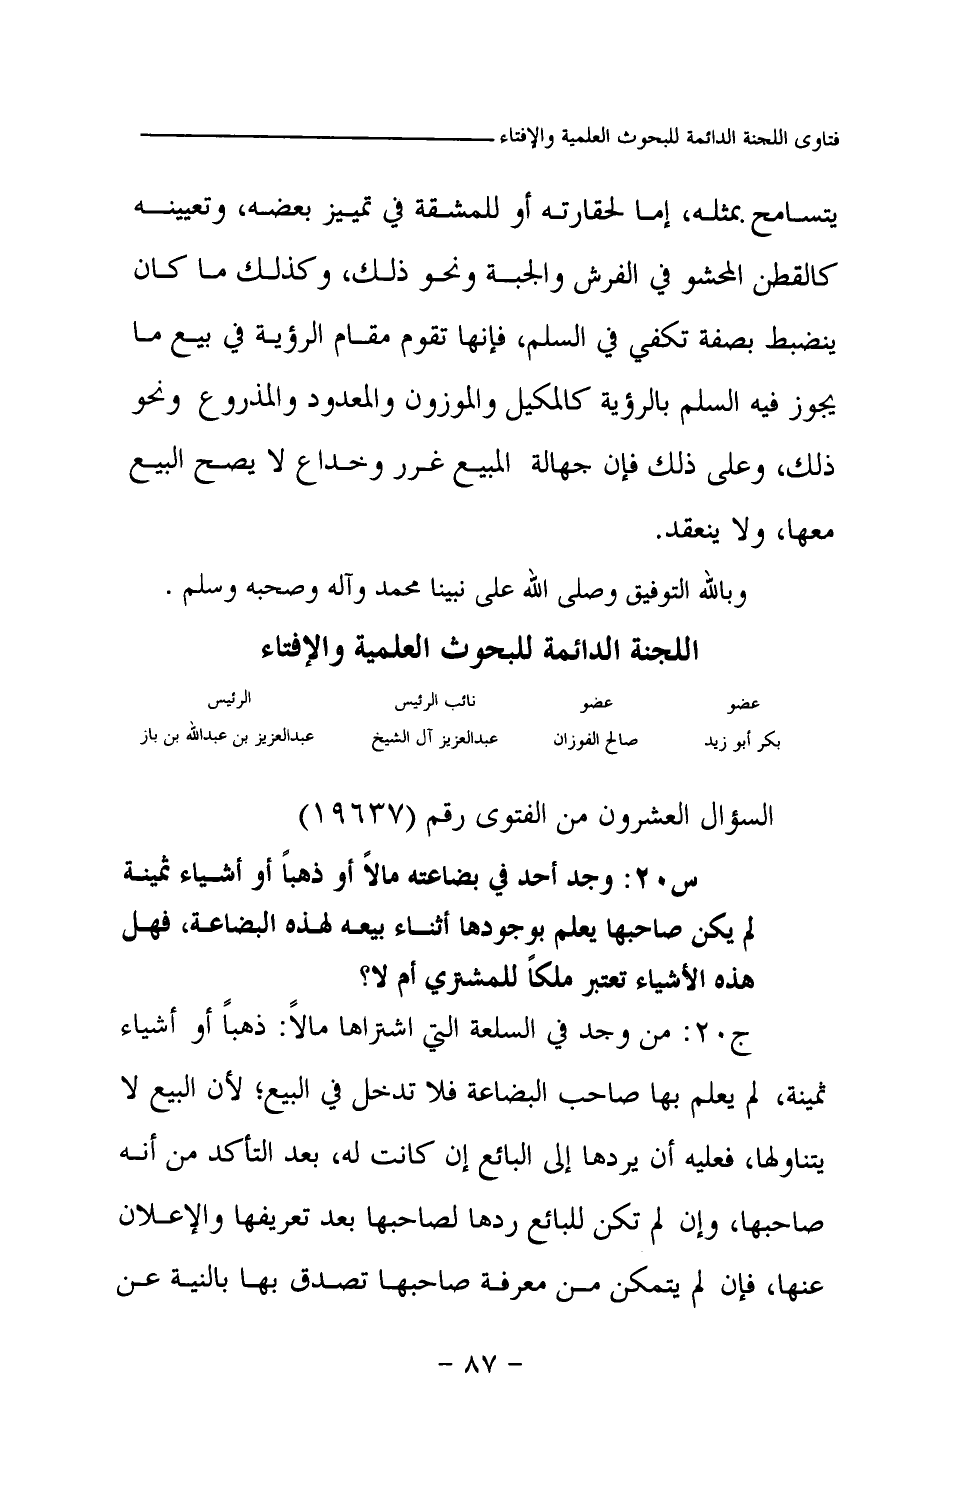 فتاوى اللجنة الدائمة للبحوث العلمية والإفتاء
يتسامح بمثله، إما لحقارته أو للمشقة في تمييز بعضه، وتعيينه
كالقطن المحشو في الفرش والجبة ونحو ذلك، وكذلك ما كان
ينضبط بصفة تكفي في السلم، فإنها تقوم مقام الرؤية في بيع ما
يجوز فيه السلم بالرؤية كالمكيل والموزون والمعدود والمذروع ونحو
ذلك، وعلى ذلك فإن جهالة المبيع غرر وخداع لا يصح البيع
معها، ولا ينعقد.
وبالله التوفيق وصلى الله على نبينا محمد وآله وصحبه وسلم .
اللجنة الدائمة للبحوث العلمية والإفتاء
عضو عضو نائب الرئيس الرئيس
بكر أبو زيد صالح الفوزان عبدالعزيز آل الشيخ عبدالعزيز بن عبدالله بن باز
السؤال العشرون من الفتوى رقم (١٩٦٣٧)
س٢٠: وجد أحد في بضاعته مالاً أو ذهباً أو أشياء ثمينة
لم يكن صاحبها يعلم بوجودها أثناء بيعه لهذه البضاعة، فهل
هذه الأشياء تعتبر ملكاً للمشتري أم لا؟
ج٢٠: من وجد في السلعة التي اشتراها مالاً: ذهباً أو أشياء
ثمينة، لم يعلم بها صاحب البضاعة فلا تدخل في البيع؛ لأن البيع لا
يتناولها، فعليه أن يردها إلى البائع إن كانت له، بعد التأكد من أنه
صاحبها، وإن لم تكن للبائع ردها لصاحبها بعد تعريفها والإعلان
عنها، فإن لم يتمكن من معرفة صاحبها تصدق بها بالنية عن
- ٨٧ -